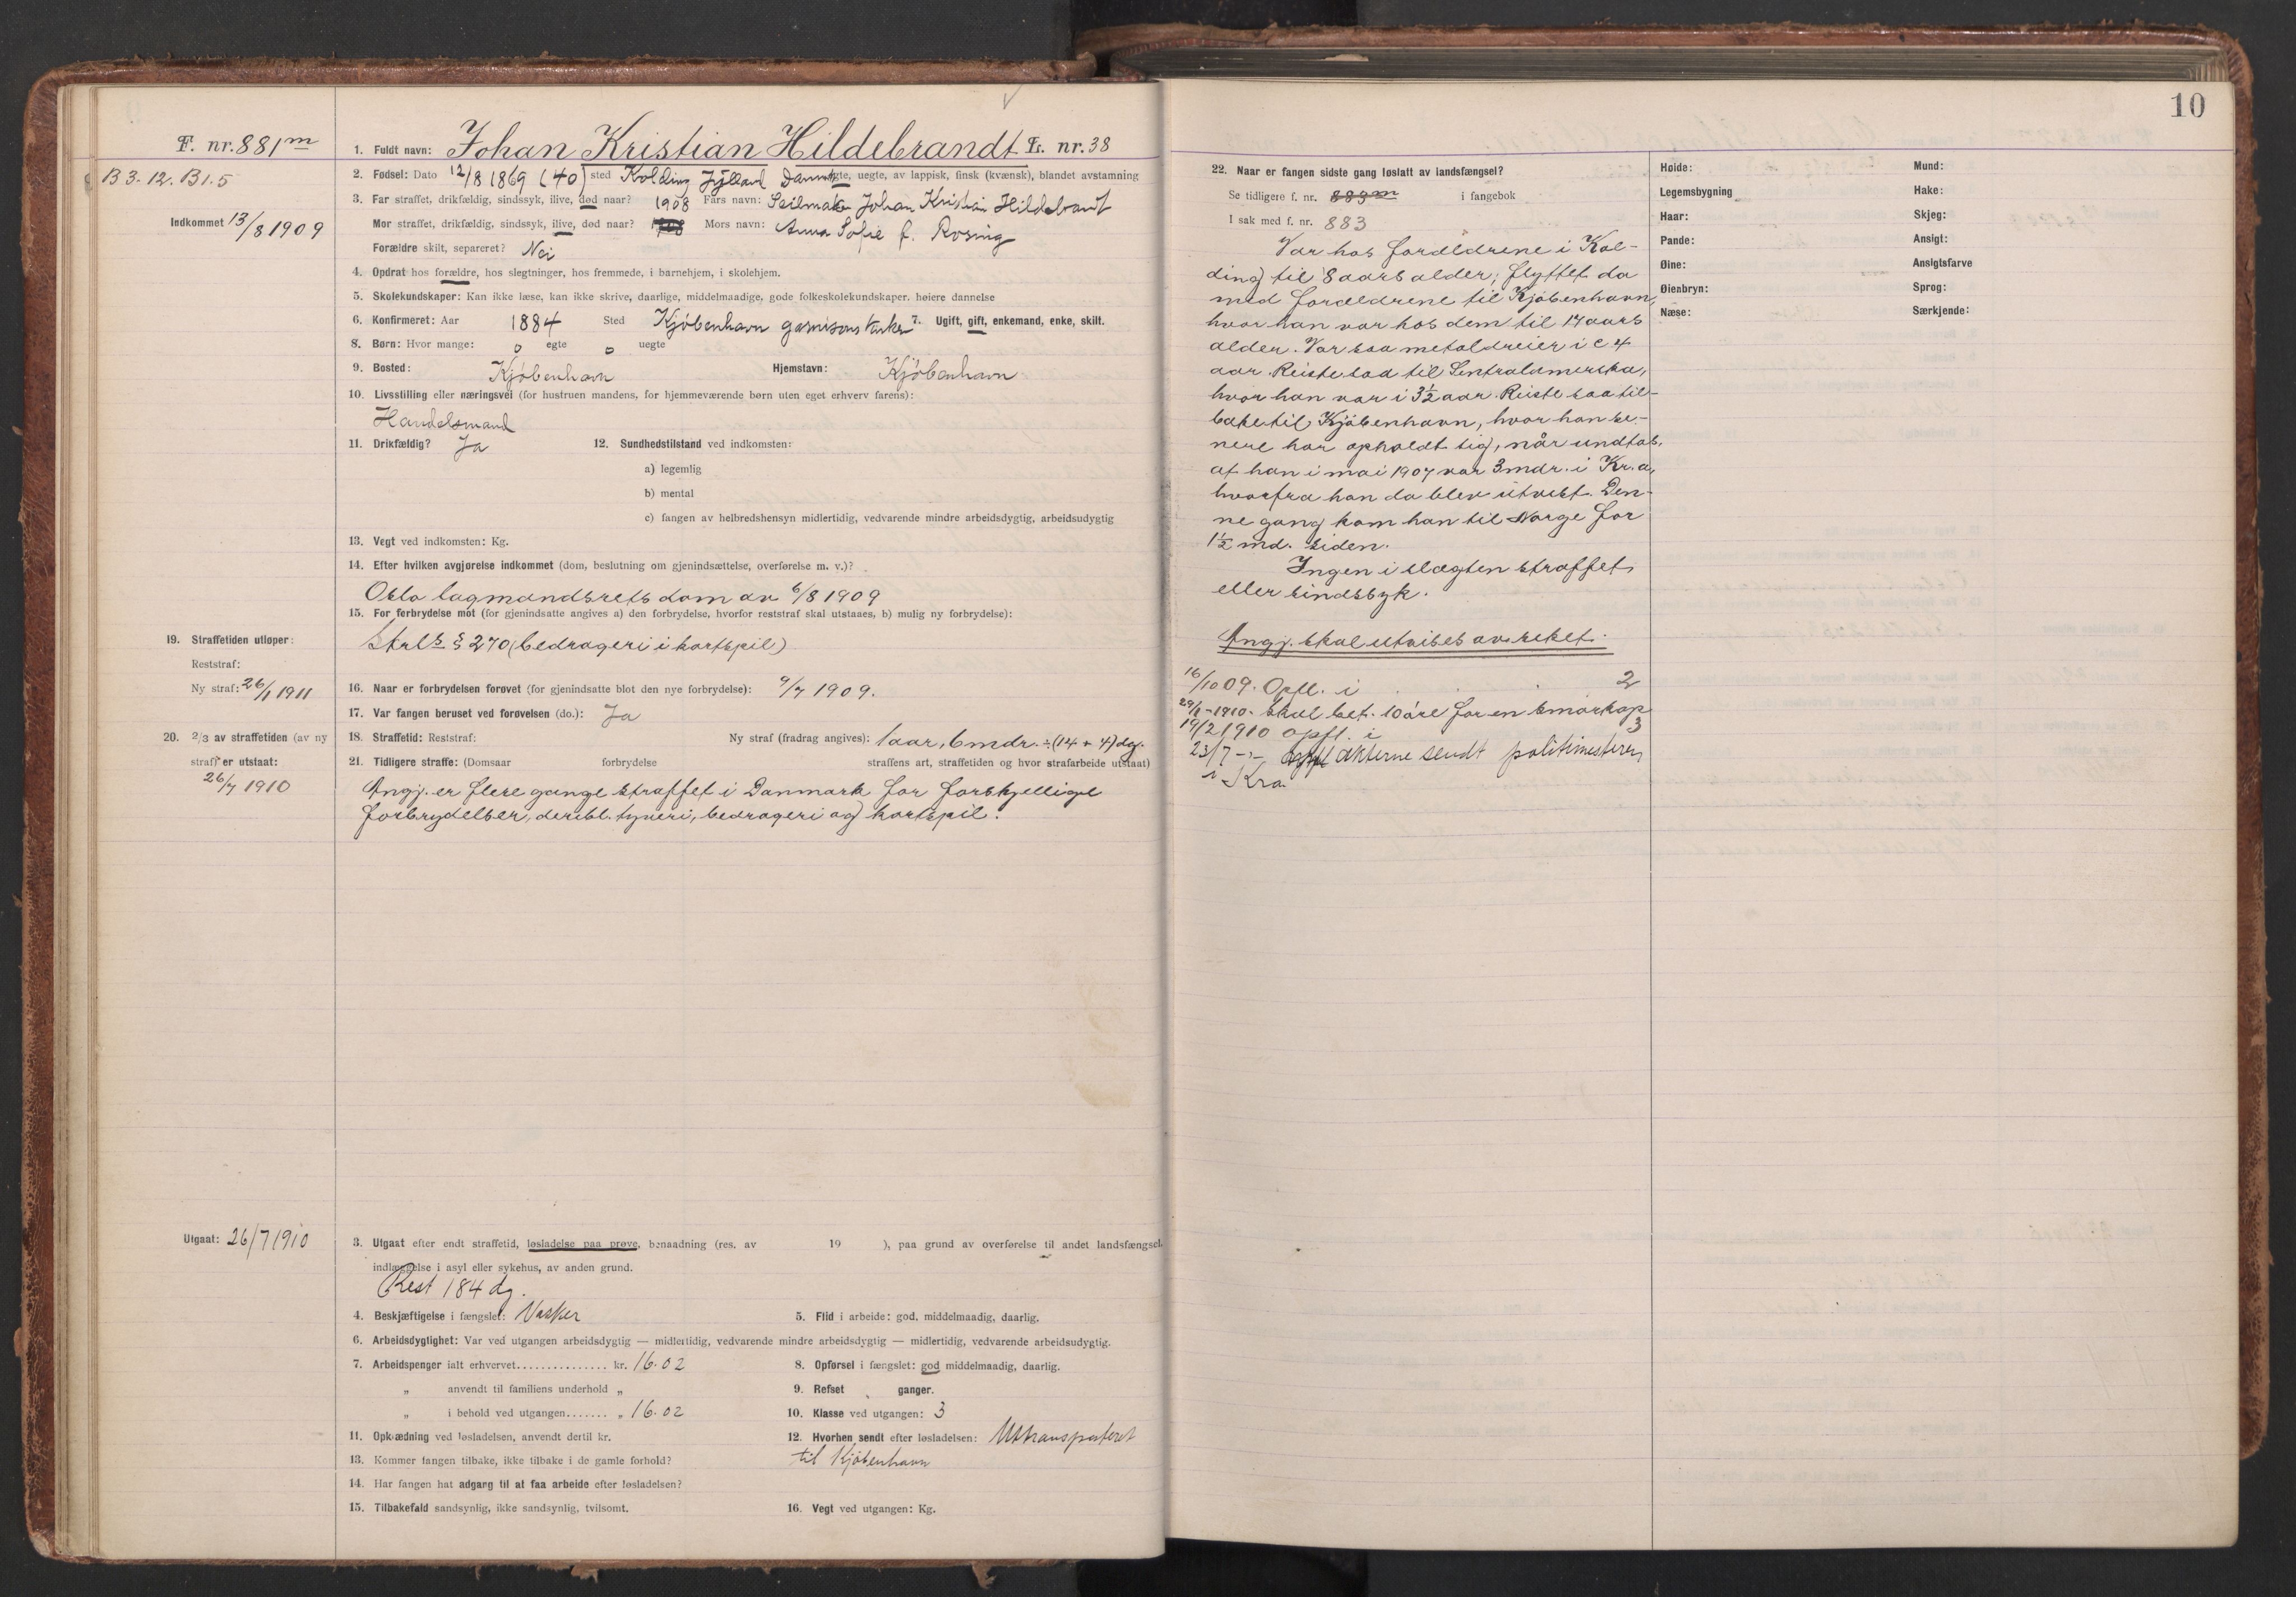 F. nr. 881 m
B 3. 12. B 1. 5
Indkommet 13/8 1909
1. Fuldt navn: Johan Kristian Hildebrandt Fr. nr. 38
2. Fødsel: Dato 12/8 1869 (40) sted Kolding Jylland Danmark egte, uegte, av lappisk, finsk (kvænsk), blandet avstamning
3. Far straffet, drikfældig, sindssyk, ilive, død naar? 1908 Fars navn: Seilmaker Johan Kristian Hildebrandt
Mor straffet, drikfældig, sindssyk, ilive, død naar? 1908 Mors navn: Anna Sofie f. Rosing
Forældre skilt, separeret? Nei
4. Opdrat hos forældre, hos slegtninger, hos fremmede, i barnehjem, i skolehjem.
5. Skolekundskaper: Kan ikke læse, kan ikke skrive, daarlige, middelmaadige, gode folkeskolekundskaper, høiere dannelse
6. Konfirmeret: Aar 1884 Sted Kjöbenhavn garnisons kirke 7. Ugift, gift, enkemand, enke, skilt.
8. Børn: Hvor mange: 0 egte 0 uegte
9. Bosted: Kjöbenhavn Hjemstavn: Kjöbenhavn
10. Livsstilling eller næringsvei (for hustruen mandens, for hjemmeværende børn uten eget erhverv farens):
Handelsmand
11. Drikfældig? Ja 12. Sundhedstilstand ved indkomsten:
a) legemlig
b) mental
c) fangen av helbredshensyn midlertidig, vedvarende mindre arbeidsdygtig, arbeidsudygtig
13. Vegt ved indkomsten: Kg.
14. Efter hvilken avgjørelse indkommet (dom, beslutning om gjenindsættelse, overførelse m. v.)?
Oslo lagmandsrets dom av 6/8 1909
15. For forbrydelse mot (for gjenindsatte angives a) den forbrydelse, hvorfor reststraf skal utstaaes, b) mulig ny forbrydelse):
Strl's § 270 (bedrageri i kortspil)
19. Straffetiden utløper:
Reststraf:
Ny straf: 26/1 1911
16. Naar er forbrydelsen forøvet (for gjenindsatte blot den nye forbrydelse): 9/7 1909.
17. Var fangen beruset ved forøvelsen (do.): Ja
20. 2/3 av straffetiden (av ny
straf) er utstaat:
26/7 1910
18. Straffetid: Reststraf: Ny straf (fradrag angives): 1 aar, 6 mdr. ÷ (14 + 4) dg.
21. Tidligere straffe: (Domsaar forbrydelse straffens art, straffetiden og hvor strafarbeide utstaat)
Angj. er flere gange straffet i Danmark for forskjellige
forbrydelser, deribl. tyveri, bedrageri og kortspil.
Utgaat: 26/7 1910
3. Utgaat efter endt straffetid, løsladelse paa prøve, benaadning (res. av 19 ), paa grund av overførelse til andet landsfængsel,
indlæggelse i asyl eller sykehus, av anden grund.
Rest 184 dg.
4. Beskjæftigelse i fængslet: Vasker 5. Flid i arbeide: god, middelmaadig, daarlig.
6. Arbeidsdygtighet: Var ved utgangen arbeidsdygtig — midlertidig, vedvarende mindre arbeidsdygtig — midlertidig, vedvarende arbeidsudygtig.
7. Arbeidspenger ialt erhvervet............... kr. 16.02 8. Opførsel i fængslet: god middelmaadig, daarlig.
„ anvendt til familiens underhold „ 9. Refset ganger.
„ i behold ved utgangen....... „ 16.02 10. Klasse ved utgangen: 3
11. Opklædning ved løsladelsen, anvendt dertil kr. 12. Hvorhen sendt efter løsladelsen: Uttransporteret
13. Kommer fangen tilbake, ikke tilbake i de gamle forhold? til Kjöbenhavn
14. Har fangen hat adgang til at faa arbeide efter løsladelsen?
15. Tilbakefald sandsynlig, ikke sandsynlig, tvilsomt. 16. Vegt ved utgangen: Kg.
10
22. Naar er fangen sidste gang løslatt av landsfængsel?
Se tidligere f. nr. 883 m i fangebok
I sak med f. nr. 883
Var hos forældrene i Kol-
ding til 8 aars alder, flyttet da
med forældrene til Kjöbenhavn,
hvor han var hos dem til 14 aars
alder. Var saa metaldreier i c 4
aar. Reiste saa til Sentralamerika,
hvor han var i 3½ aar. Reiste saa til-
bake til Kjöbenhavn, hvor han se-
nere har opholdt sig, når undtas,
at han i mai 1907 var 3 mdr. i Kr.a,
hvorfra han da blev utvist. Den-
ne gang kom han til Norge for
1½ md. siden.
Ingen i slægten straffet
eller sindssyk.
Angj. skal utvises av riket.
16/10 09. Opfl. i . . . 2
29/1 - 1910. skal bet. 10 øre for en smørkop
19/2 1910 opfl. i 3
23/7 -"- akterne sendt politimesteren
i Kra.
Høide:
Legemsbygning
Haar:
Pande:
Øine:
Øienbryn:
Næse:
Mund:
Hake:
Skjeg:
Ansigt:
Ansigtsfarve
Sprog:
Særkjende: